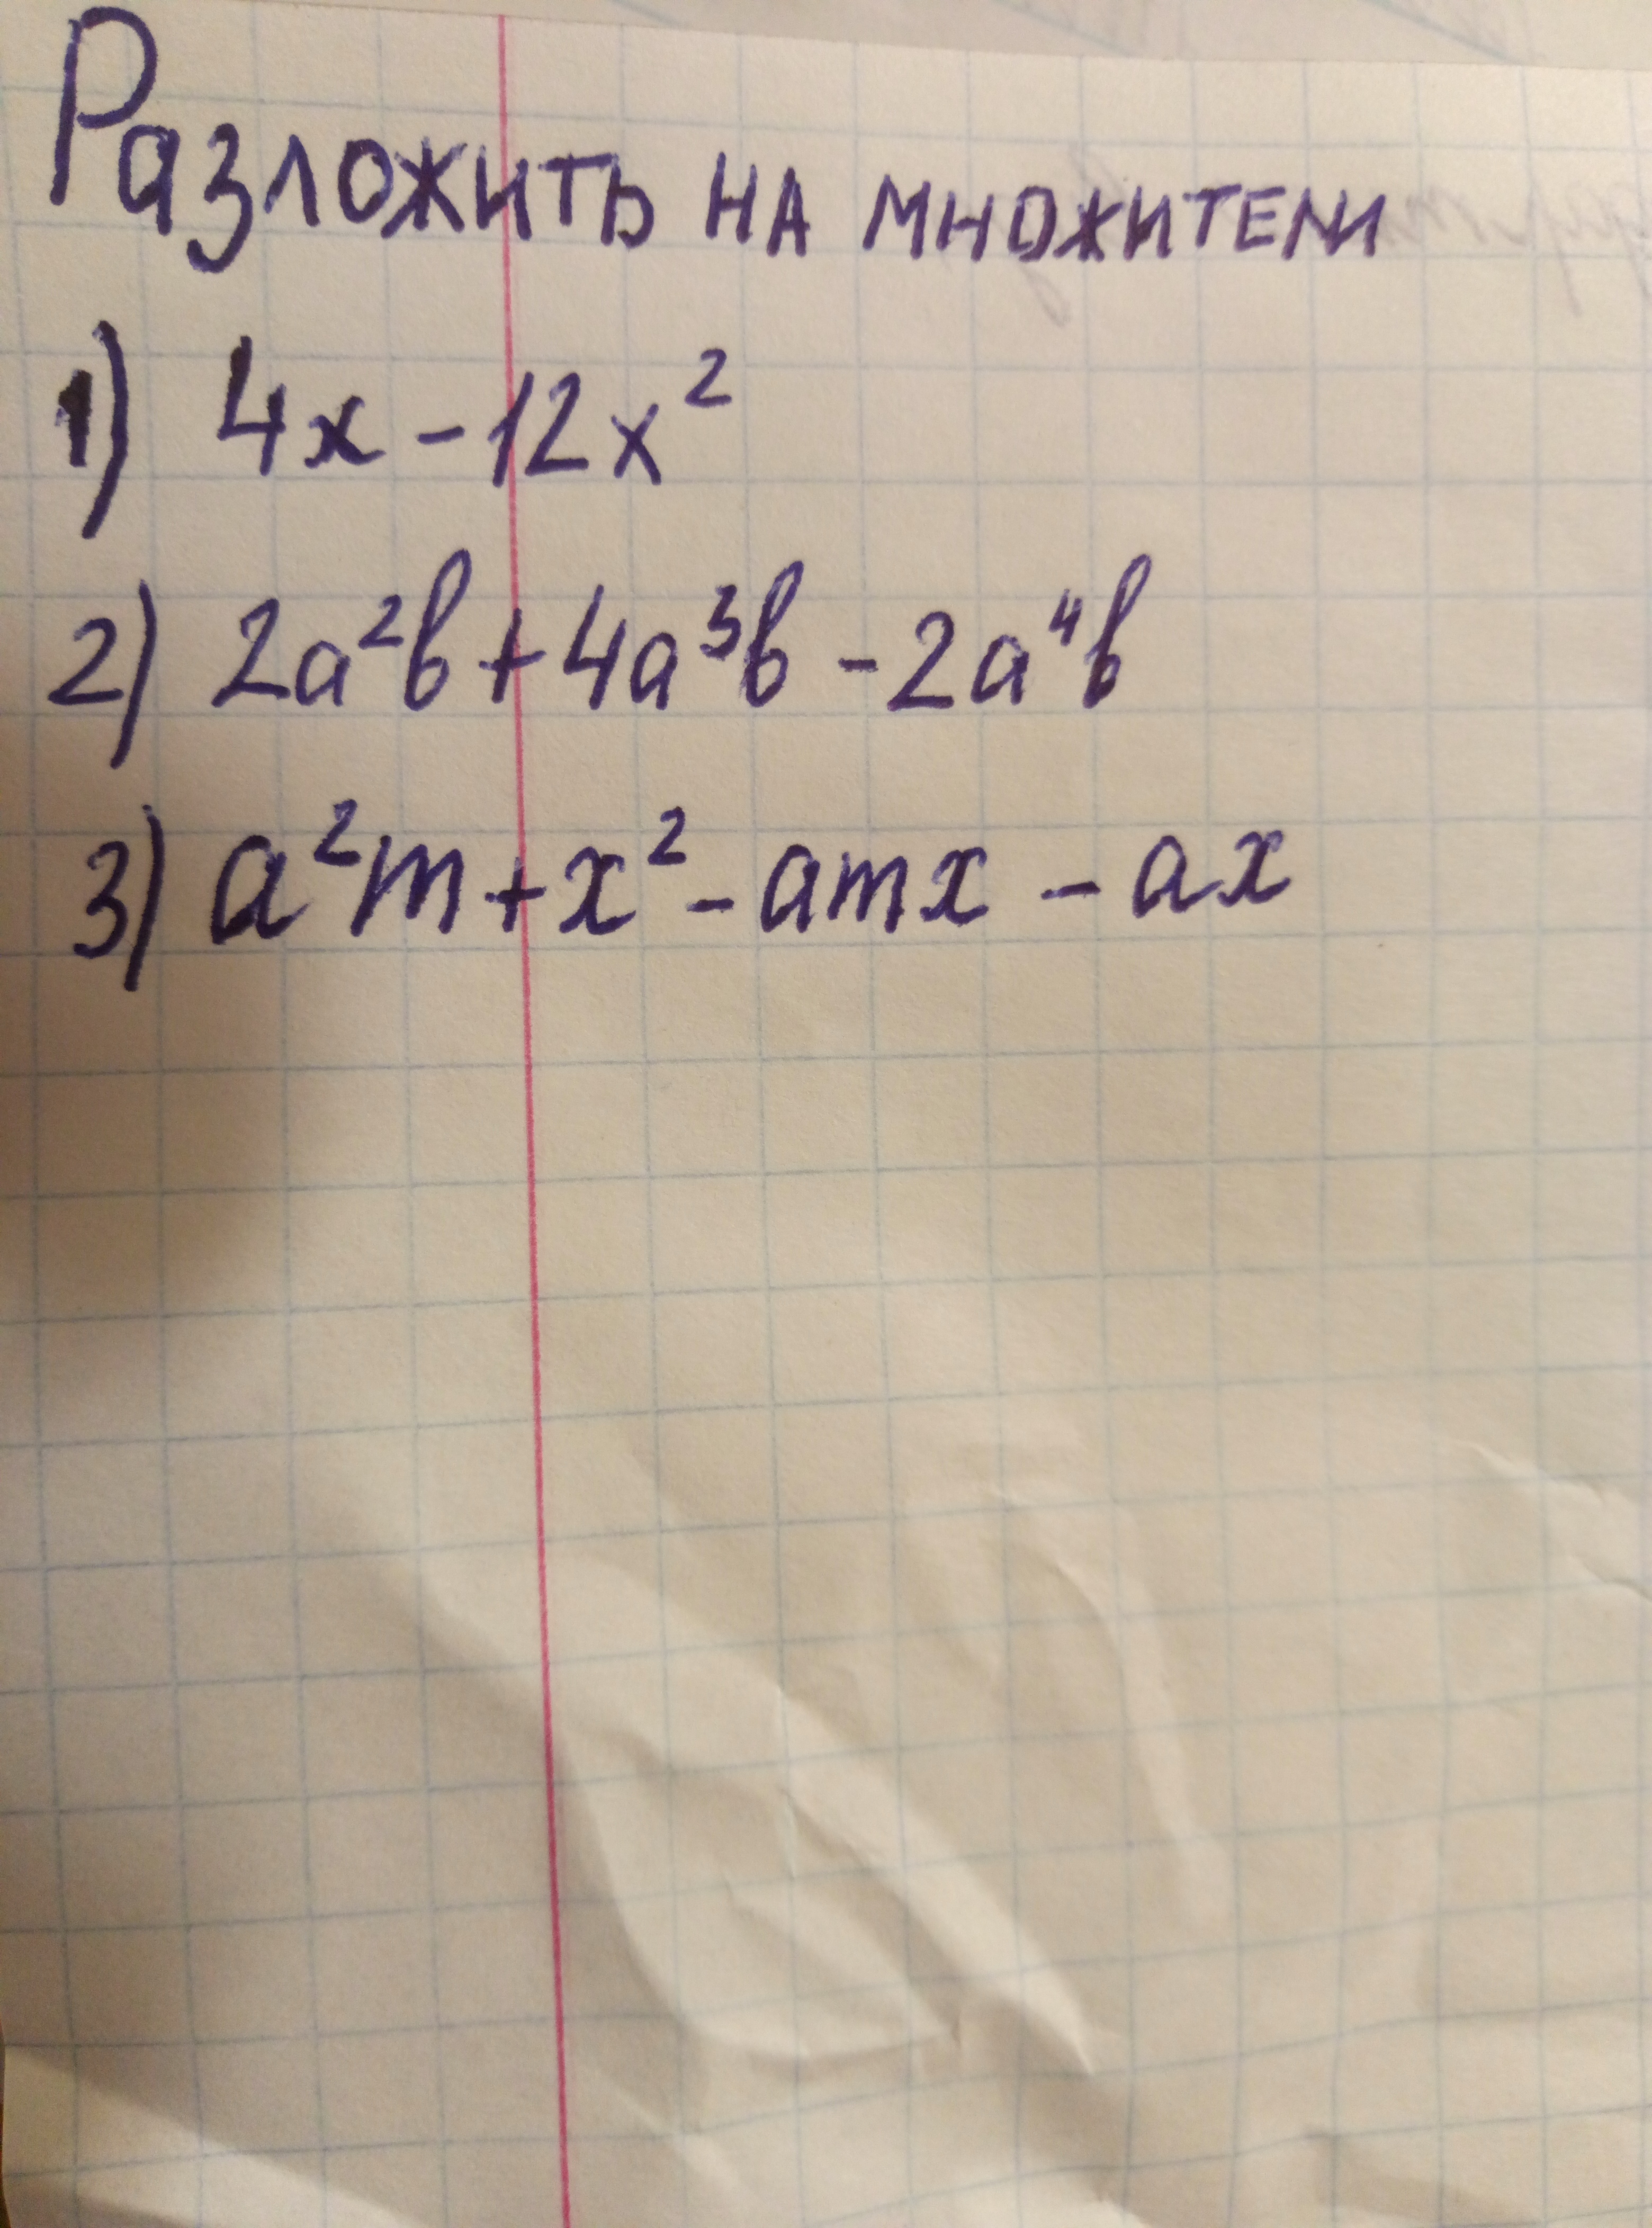 Разложить на множители
1) 4x - 12x²
2) 2a²b + 4a³b - 2a⁴b
3) a²m + x² - amx - ax